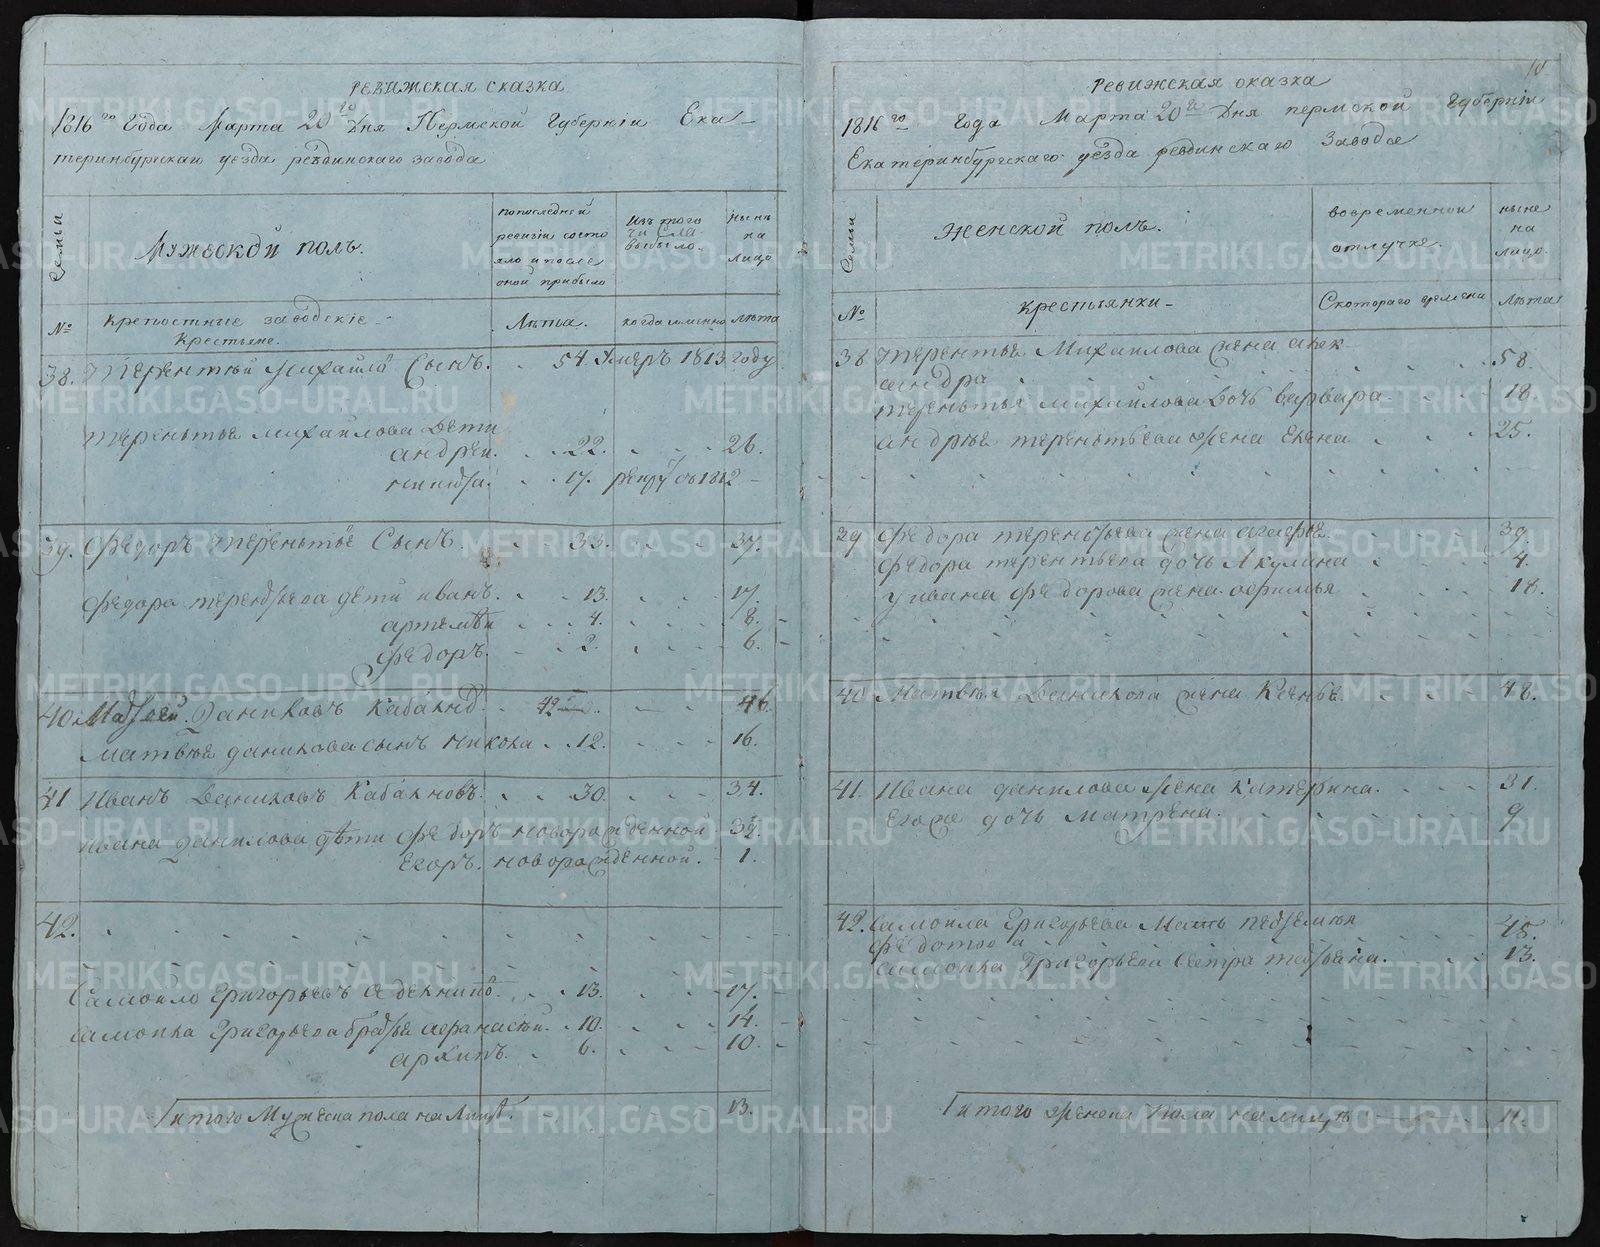 ревижская сказка
1816го Года Марта 20го Дня Пермской Губерніи Ека-
теринбургскаго уезда ревдинскаго завода
Семьи
Мужеской полъ.
попоследней
ревизіи состо
яло и после
оной прибыло
Изъ того
числа
выбыло.
нынѣ
на
лицо
№
крепостные заводскіе
Крестьяне.
Лѣта.
когда именно
лѣта
38. Терентей Михайло Сынъ. 54. Умеръ 1813 году
Терентья михаилова Дети
андреи. 22. 26.
никита. 17. рекрутъ 1812
39. Федоръ Терентье Сынъ. 33. 37.
Федора терентьева дети иванъ. 13. 17.
артемѣи 4. 8.
Федоръ. 2. 6.
40. Матвей Даниловъ Кабакнд. 42 46.
матвея данилова сынъ никола 12. 16.
41 Иванъ Даниловъ Кабакновъ. 30. 34.
ивана данилова дѣти Федоръ новорожденной 3
Егоръ. новорожденной. 1.
42.
Самойло Григорьевъ 13. 17.
самоила Григорьева братья афанасеи. 10. 14.
архипъ. 6. 10.
итого Мужеска пола на Лице. 13.
10
ревижская сказка
1816го Года Марта 20го Дня пермской Губерніи
Екатеринбургскаго уезда ревдинскаго Завода
Семьи
Женской полъ.
вовременной
отлучке.
ныне
на
лицо.
№
крестьянки-
Скотораго времени
Лѣта
38 Терентья Михаилова жена алек-
андра 58.
терентья михаилова дочь варвара 18
андрея терентьева жена Елена 25.
39 Федора терентьева жена агафья 39.
Федора терентьева дочь Акулина 4.
у ивана федорова жена офимья 18.
40 Матвея Данилова жена Ксенья 48.
41. Ивана данилова жена Катерина. 31.
Егоже дочь Матрена. 9
42. Самоила Григорьева Мать
Федотова 48.
самоила Григорьева сестра татьяна. 13.
итого женска пола на лицо 11.
METRIKI.GASO-URAL.RU